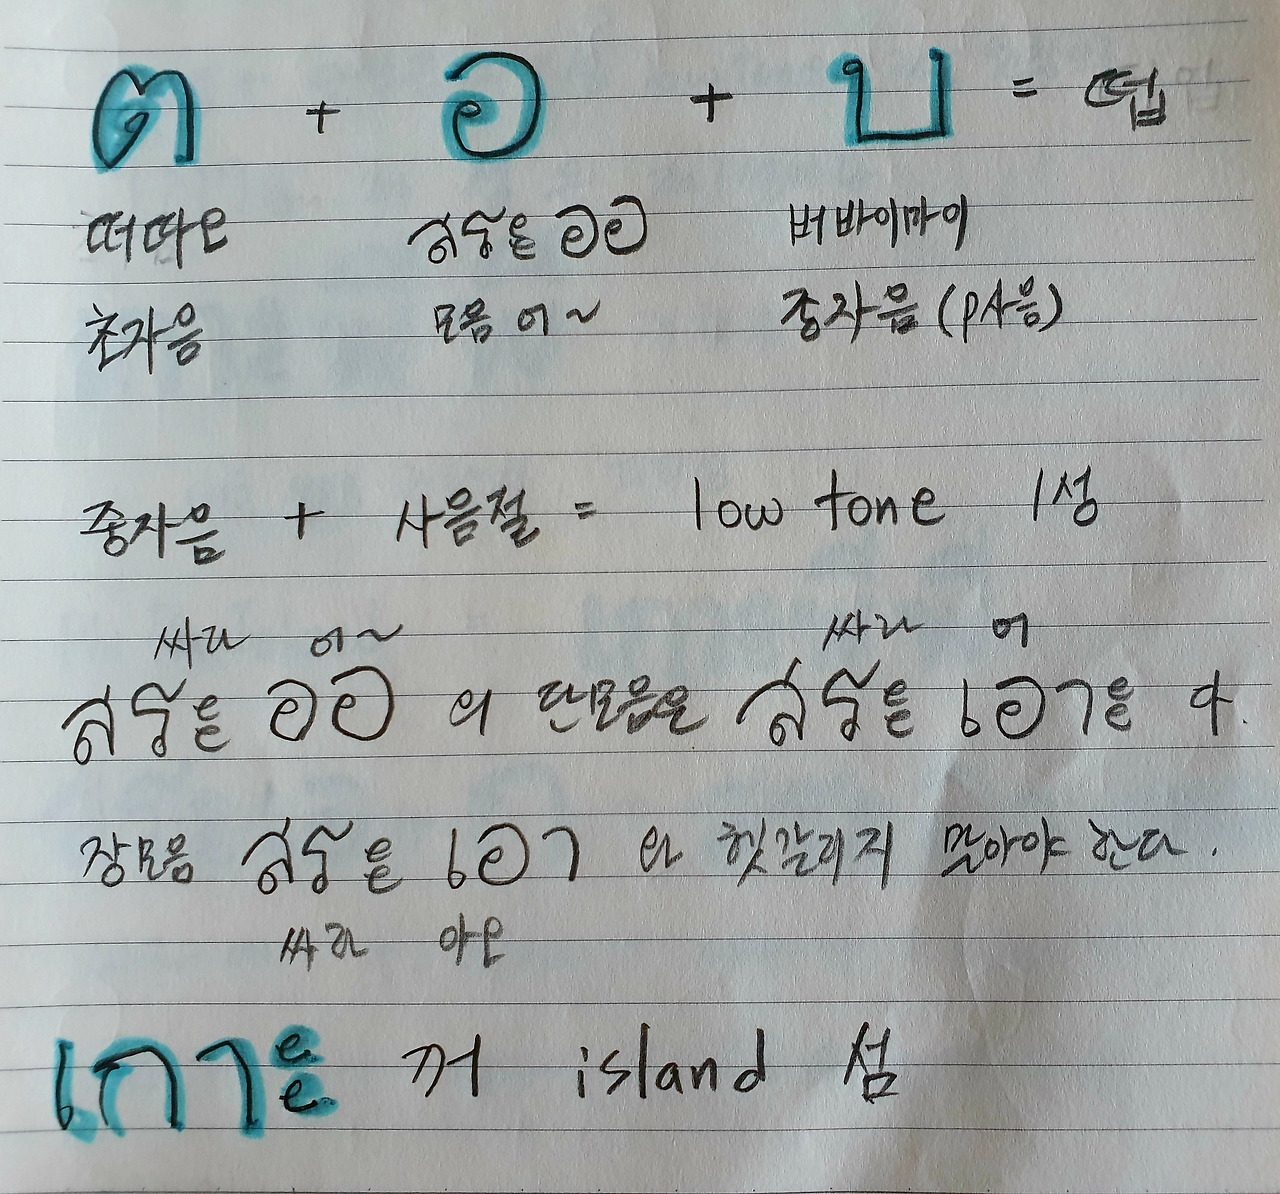 ต + อ + บ =떱
떠따오 สระออ 버바이마이
초자음 모음 어~ 종자음 (p사음)
중자음 + 사음절 = low tone 1성
싸라 어~ 싸라 어
สระ ออ 의 단모음은 สระ เอาะ 다.
장모음 สระ เอา 와 헷갈리지 말아야 한다.
싸라 아오
เกาะ 꺼 island 섬